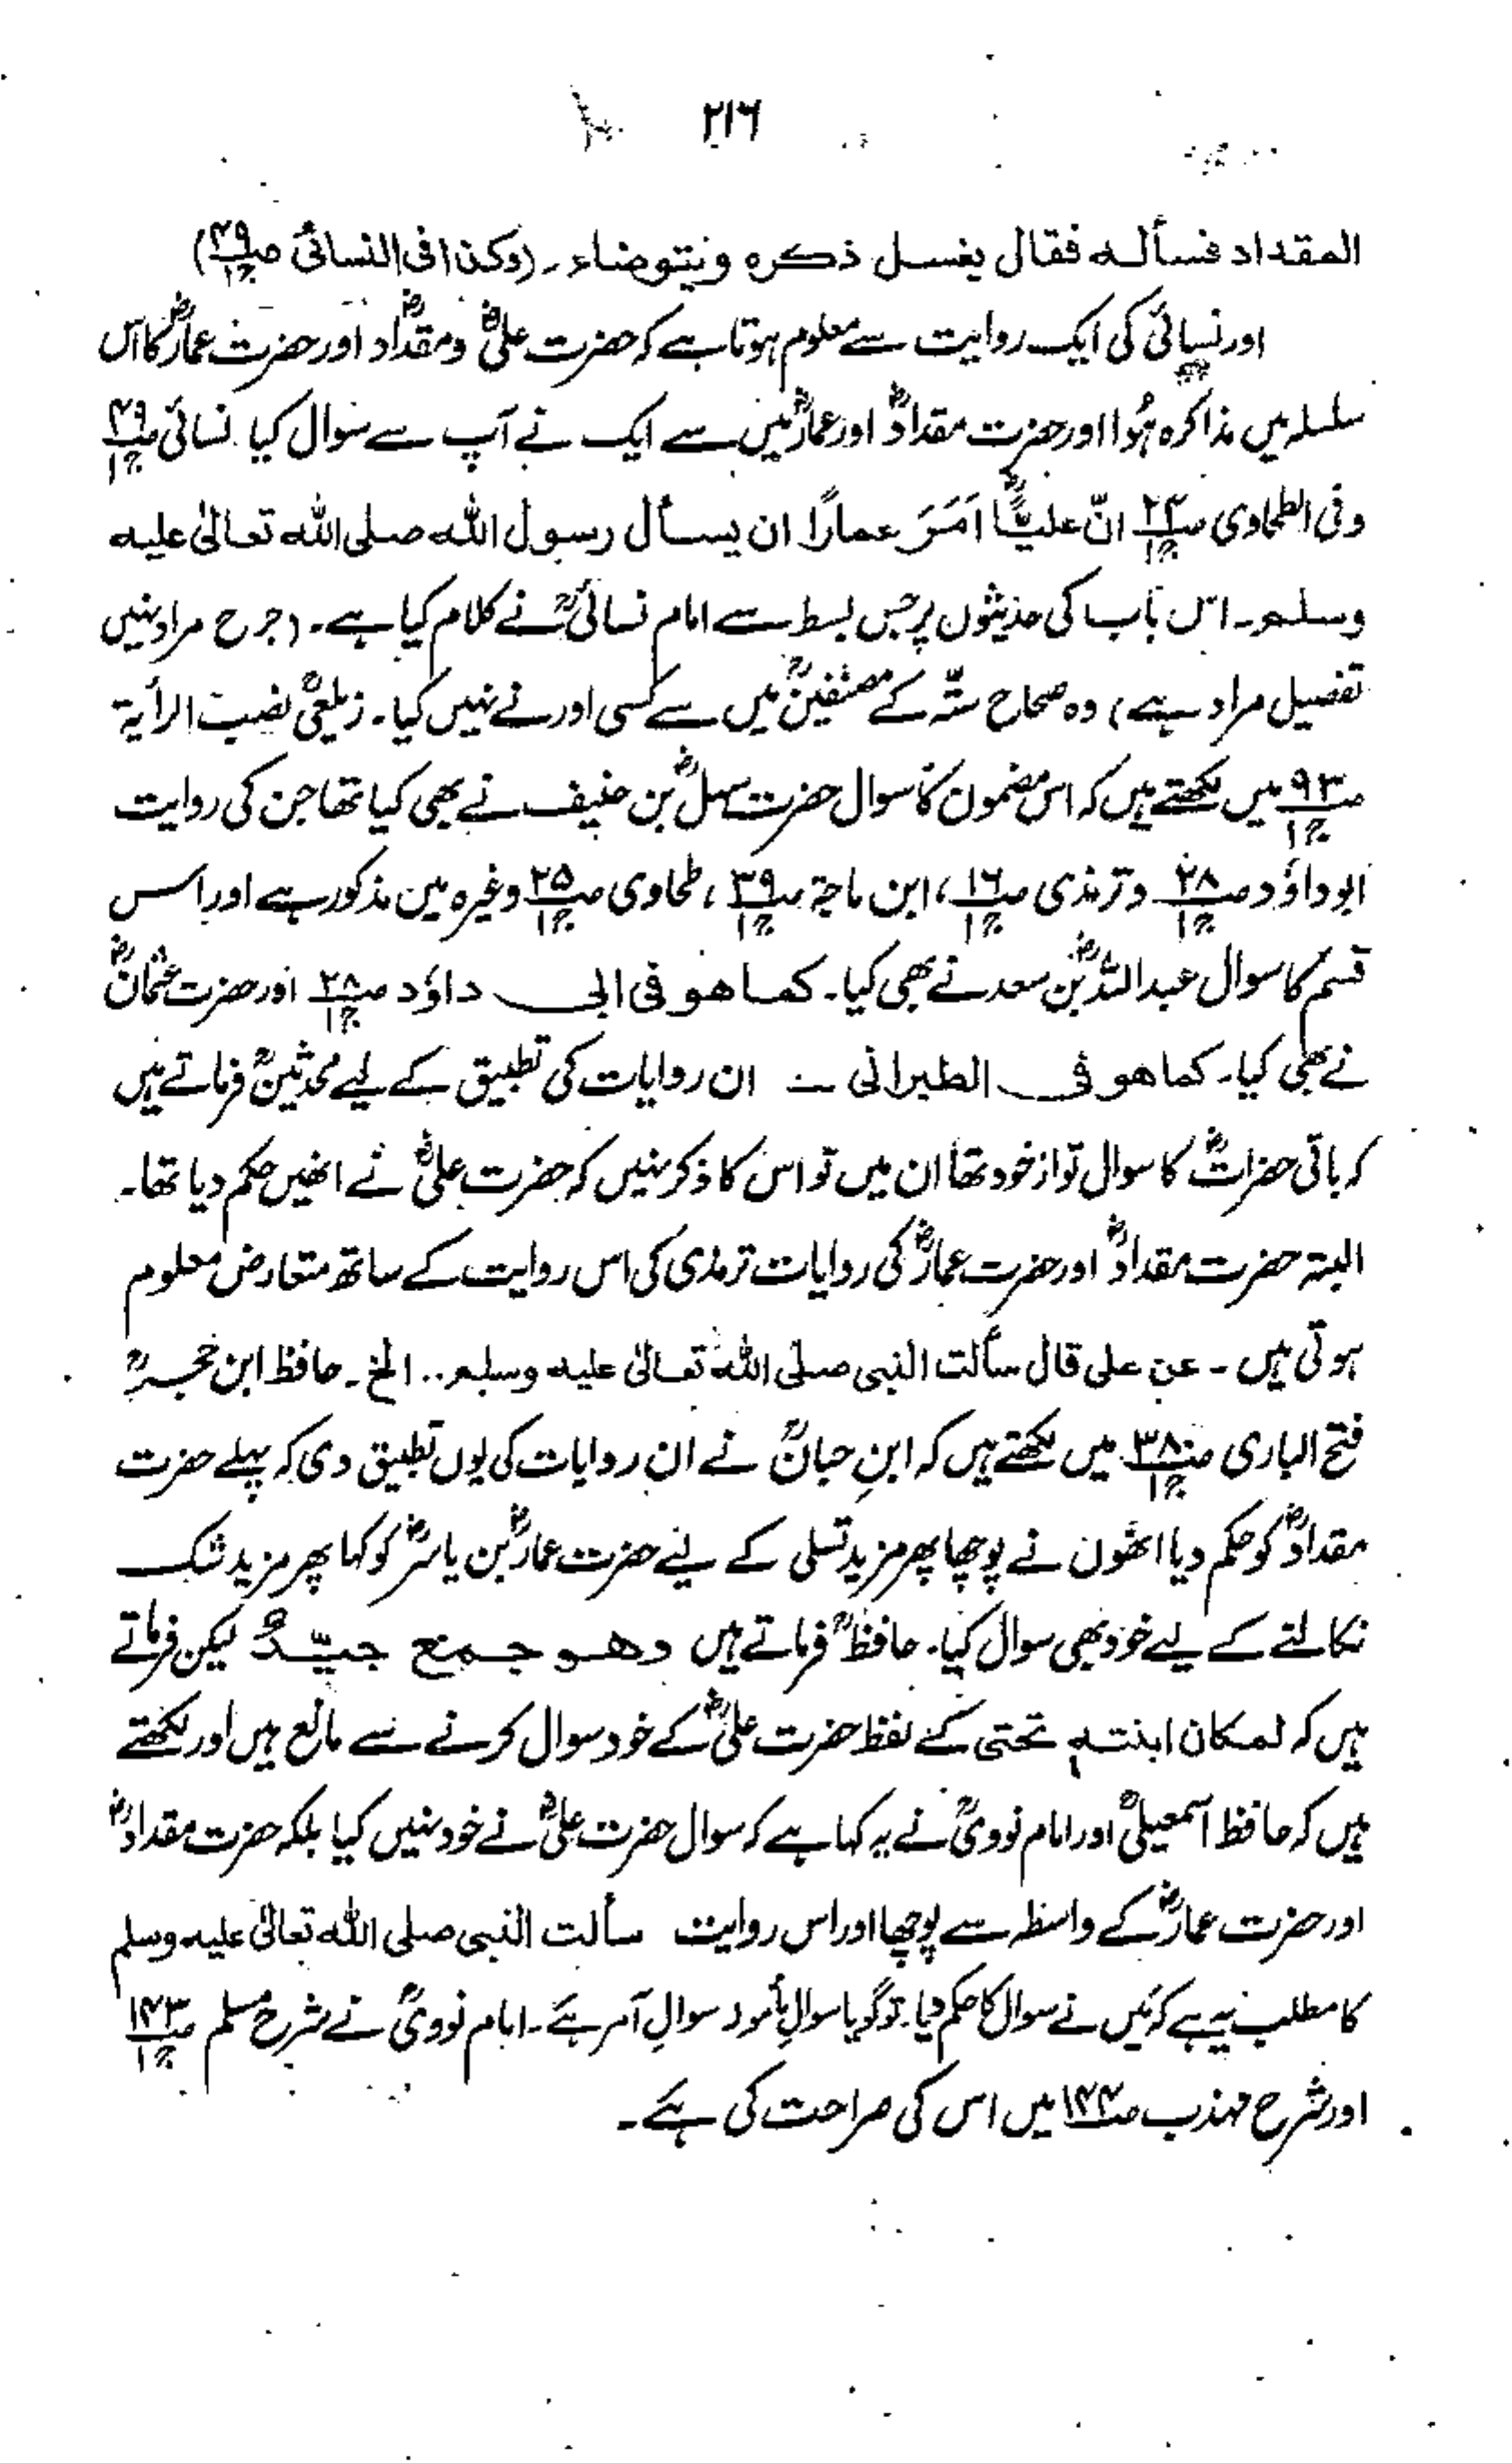 ۲۱۶
المقداد فسأله فقال یغسل ذکرہ ویتوضاء۔ (وکذا فی النسائیؒ صـ۴۹ ج۱)
اور نسائیؒ کی ایک روایت سے معلوم ہوتا ہے کہ حضرت علیؓ و مقدادؓ اور حضرت عمارؓ کا اس
سلسلہ میں مذاکرہ ہُوا اور حضرت مقدادؓ اور عمارؓ میں سے ایک نے آپ سے سوال کیا۔ نسائی صـ۴۹ ج۱
وفی الطحاوی صـ۲۴ ج۱ انّ علیًّاؓ اَمَرَ عمارًا ان یسأل رسول اللہ صلی اللہ تعالیٰ علیه
وسلم۔ اس باب کی حدیثوں پر جس بسط سے امام نسائیؒ نے کلام کیا ہے۔ (جرح مراد نہیں
تفصیل مراد ہے) وہ صحاح ستّہ کے مصنفینؒ میں سے کسی اور نے نہیں کیا۔ زیلعیؒ نصب الرأیۃ
صـ۹۳ ج۱ میں لکھتے ہیں کہ اس مضمون کا سوال حضرت سہلؓ بن حنیف نے بھی کیا تھا جن کی روایت
ابوداؤد صـ۲۸ ج۱ و ترمذی صـ۱۶ ج۱، ابن ماجۃ صـ۳۹ ج۱، طحاوی صـ۲۵ ج۱ وغیرہ میں مذکور ہے اور اسس
قسم کا سوال عبداللہؓ بن سعد نے بھی کیا۔ کما ھو فی ابی داؤد صـ۲۸ ج۱ اور حضرت عثمانؓ
نے بھی کیا۔ کما ھو فی الطبرانی ـــ ان روایات کی تطبیق کے لیے محدثینؒ فرماتے ہیں
کہ باقی حضراتؓ کا سوال تو از خود تھا ان میں تو اس کا ذکر نہیں کہ حضرت علیؓ نے انھیں حکم دیا تھا۔
البتہ حضرت مقدادؓ اور حضرت عمارؓ کی روایات ترمذی کی اس روایت کے ساتھ متعارض معلوم
ہوتی ہیں ۔ عن علی قال سألت النبی صلی اللہ تعالیٰ علیه وسلم.. الخ۔ حافظ ابن حجرؒ
فتح الباری صـ۳۸۰ ج۱ میں لکھتے ہیں کہ ابنِ حبانؒ نے ان روایات کی یوں تطبیق دی کہ پہلے حضرت
مقدادؓ کو حکم دیا انھوں نے پوچھا پھر مزید تسلی کے لیے حضرت عمارؓ بن یاسرؓ کو کہا پھر مزید شک
نکالنے کے لیے خود بھی سوال کیا۔ حافظؒ فرماتے ہیں وھو جمع جیّدٌ لیکن فرماتے
ہیں کہ لمکان ابنته تحتی کے لفظ حضرت علیؓ کے خود سوال کرنے سے مانع ہیں اور لکھتے
ہیں کہ حافظ اسمٰعیلیؒ اور امام نوویؒ نے یہ کہا ہے کہ سوال حضرت علیؓ نے خود نہیں کیا بلکہ حضرت مقدادؓ
اور حضرت عمارؓ کے واسطہ سے پوچھا اور اس روایت سألت النبی صلی اللہ تعالیٰ علیه وسلم
کا مطلب یہ ہے کہ مَیں نے سوال کا حکم دیا۔ تو گویا سوالِ مأمور سوالِ آمر ہے۔ امام نوویؒ نے شرح مسلم صـ۱۴۳ ج۱
اور شرح مہذب صـ۱۴۴ میں اس کی صراحت کی ہے۔